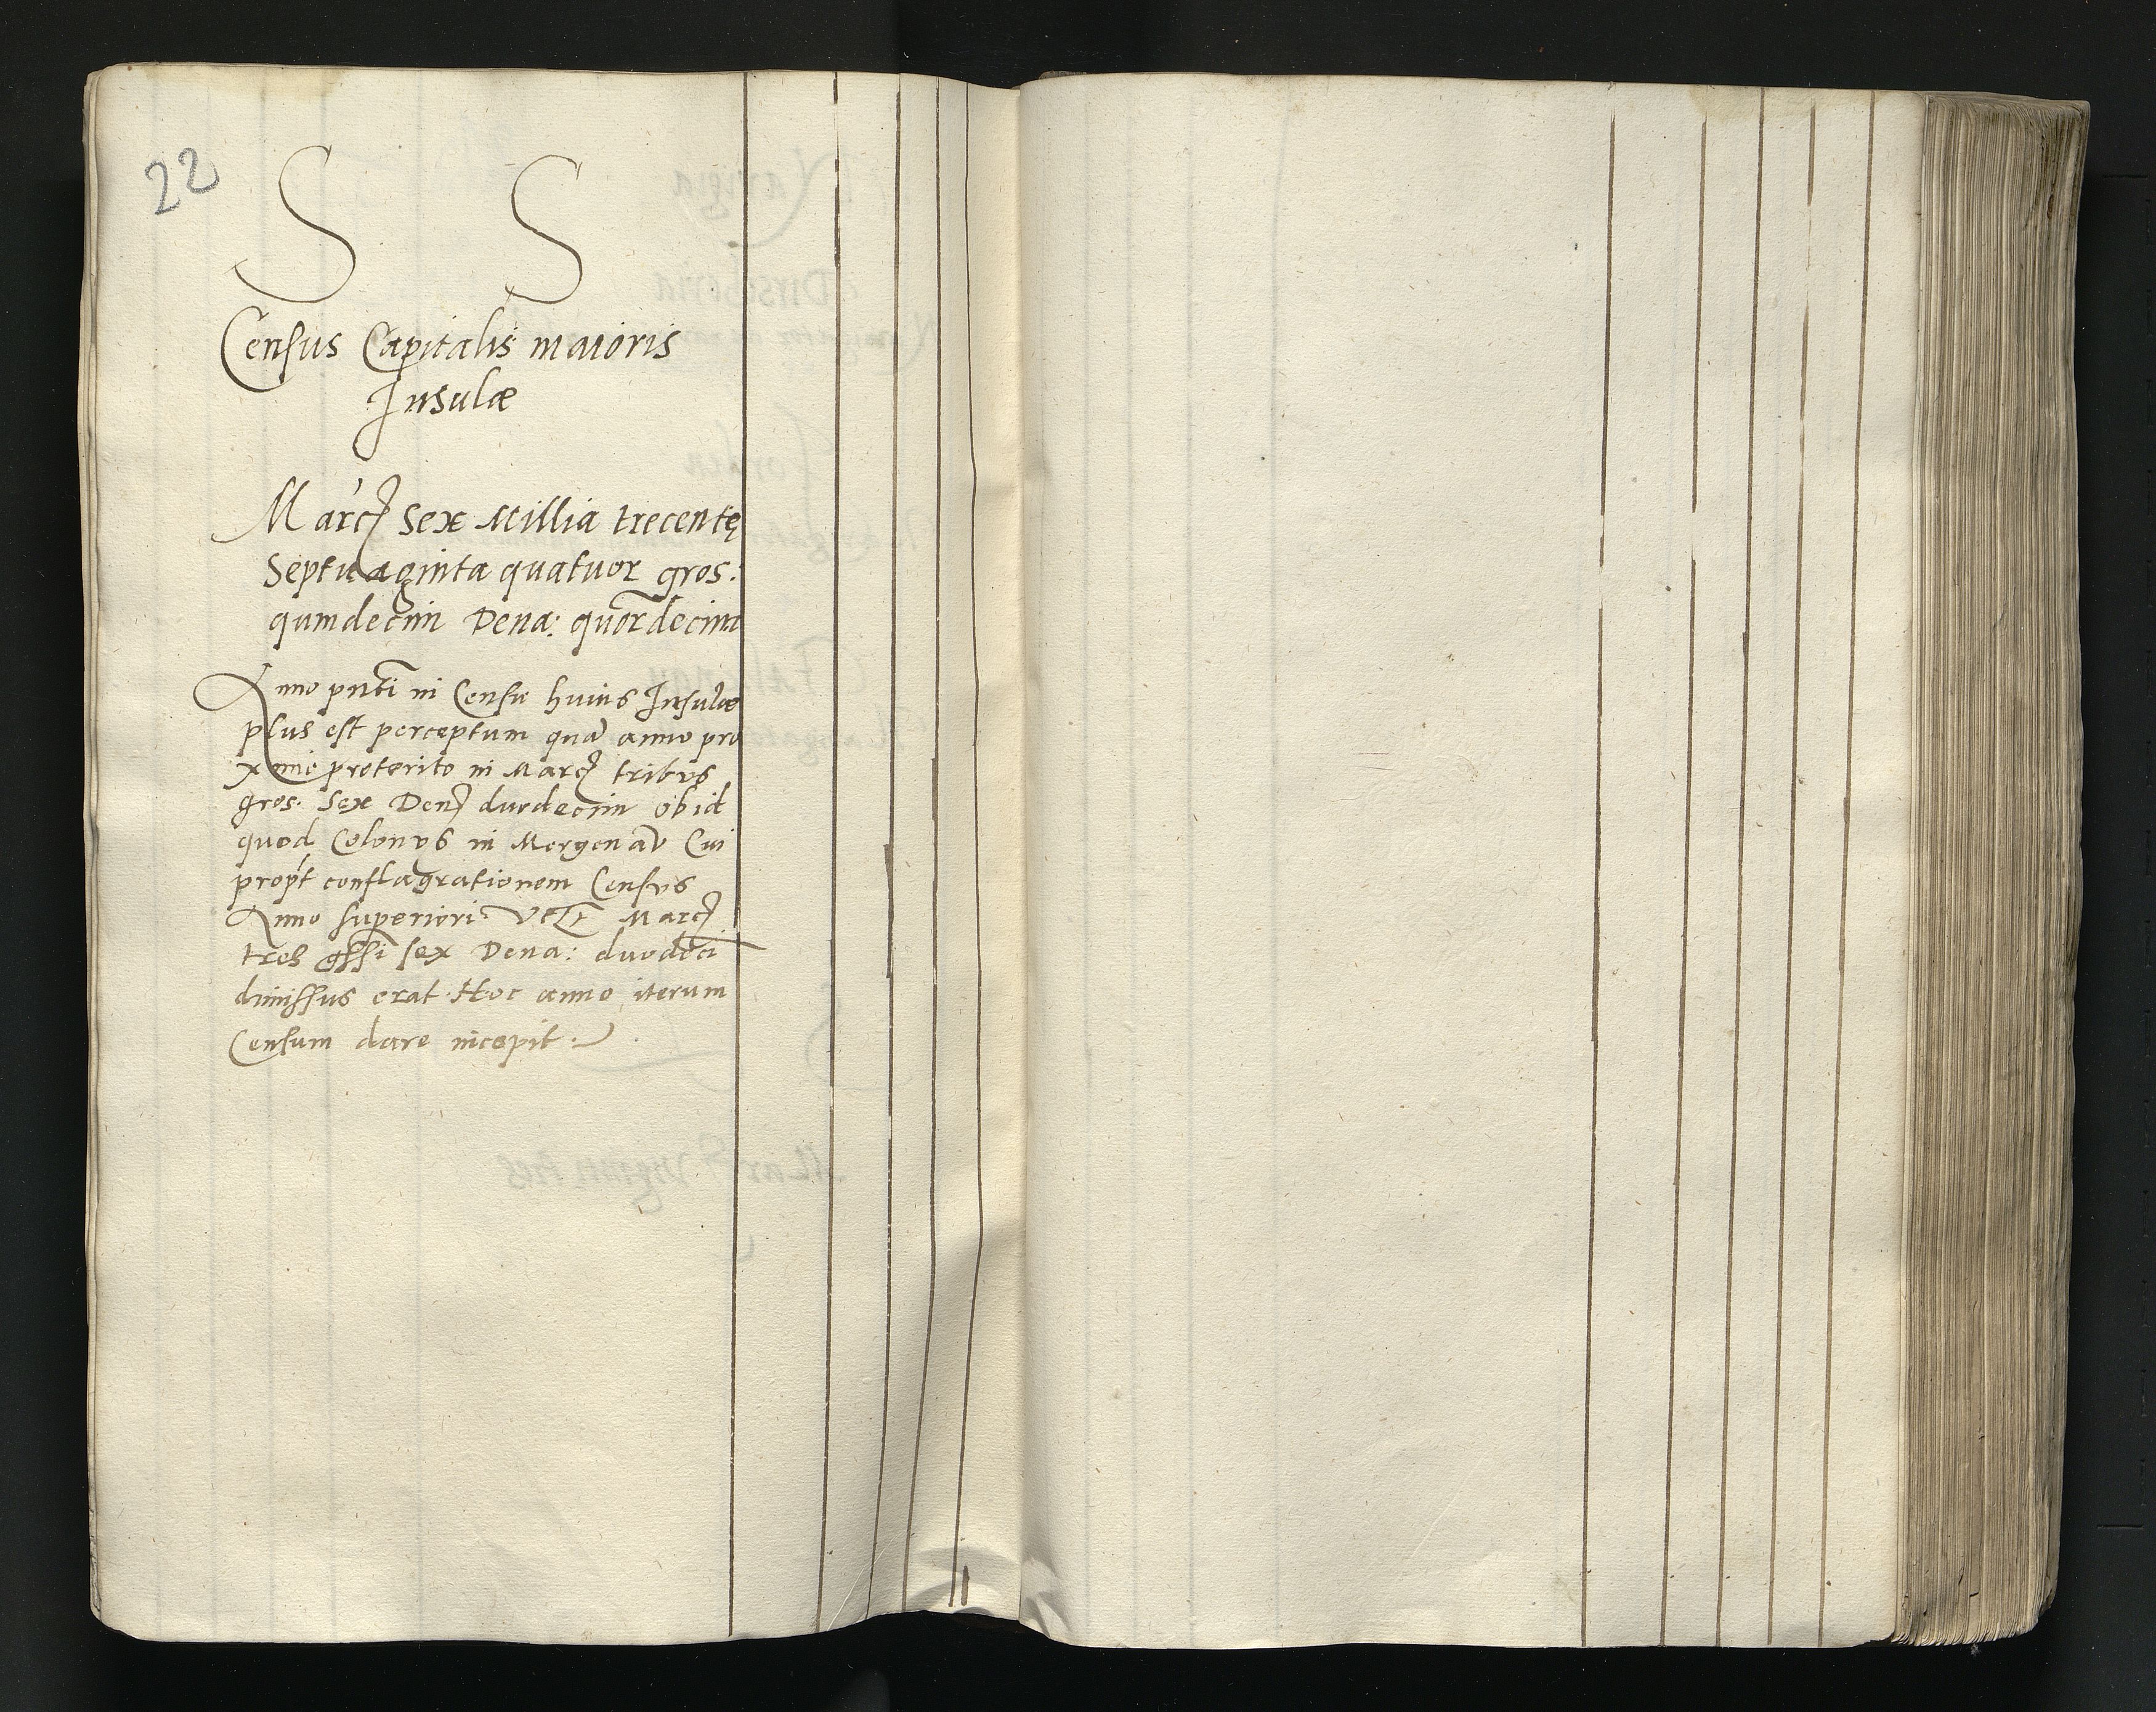 22
S S
Census Capitalis maioris
Insulæ
Marcę sex Millia trecentę
Septuaginta quatuor gros:
quindecim Dena: quordecim
Anno pnti in Censu huius Insulæ
plus est perceptum quā anno pro
ximè preterito in Marcę tribus
gros. sex Denę duodecim ob id
quod Colonus in Mergenaw Cui
propt conflagrationem Census
Anno superiori Marcę
tres gssi sex Dena: duodeci
dimissus erat. Hoc anno iterum
Censum dare incepit.